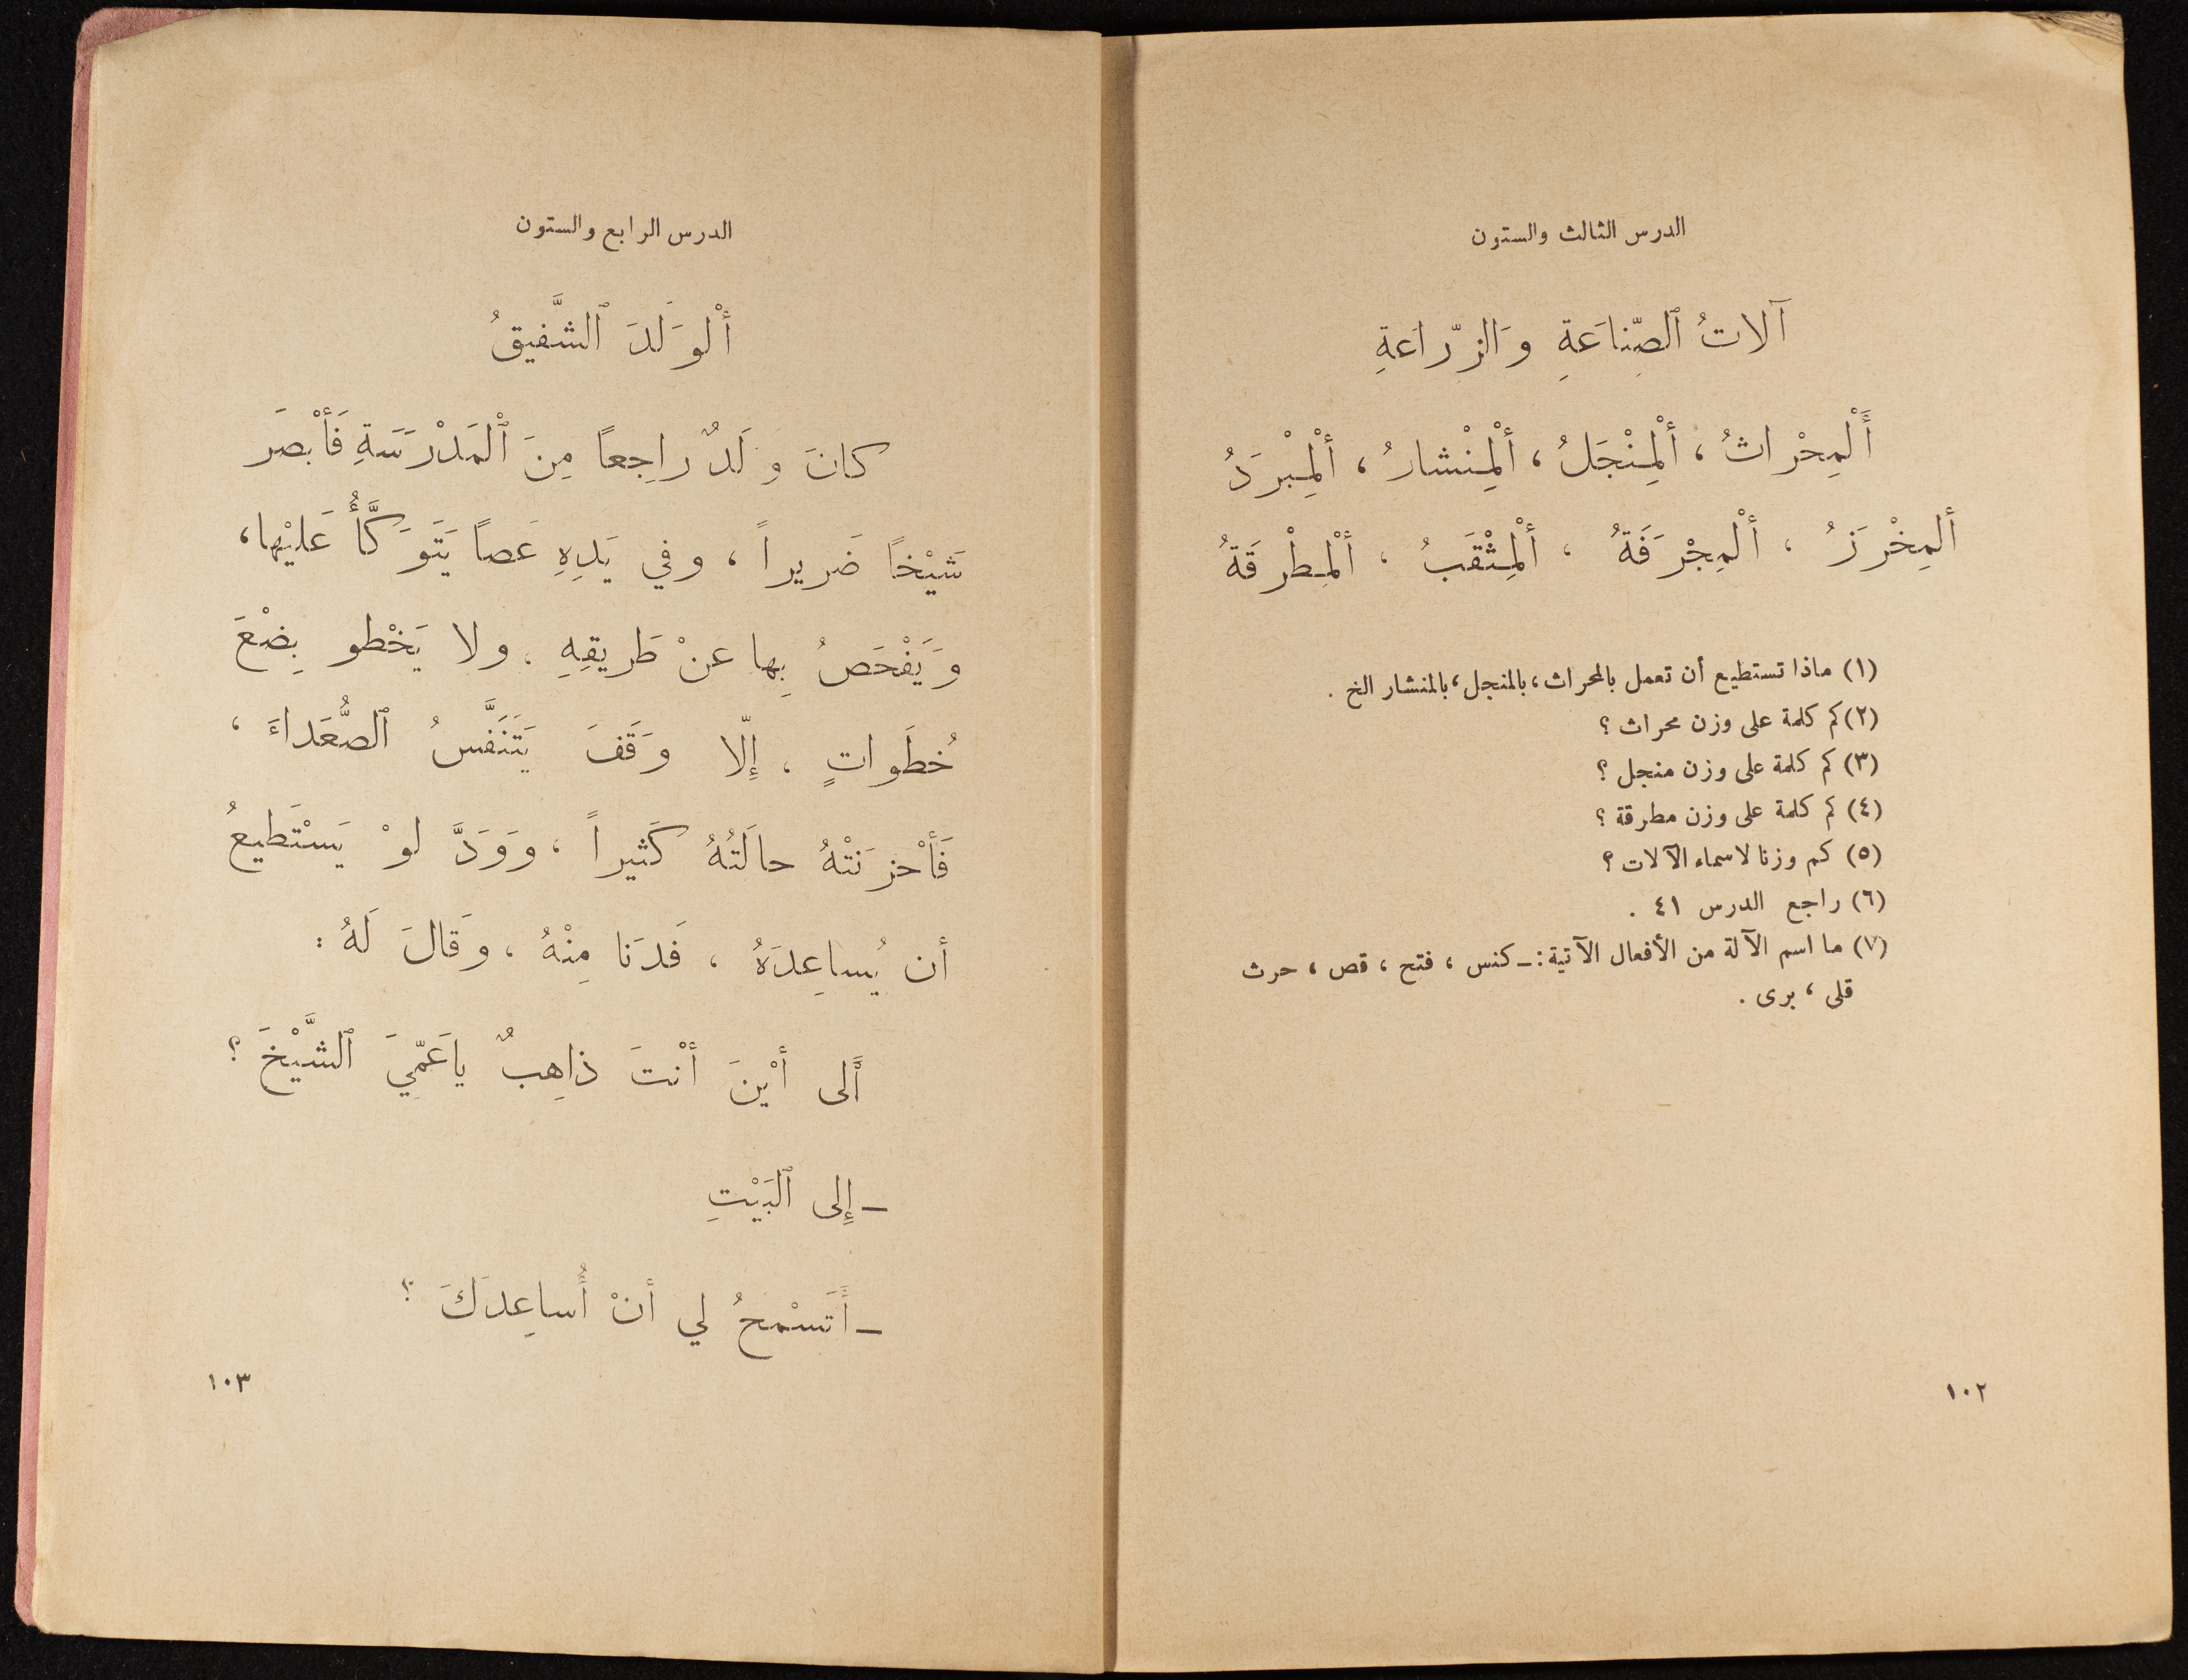 الدرس الثالث والستون
آلاتُ ٱلصِّناعَةِ وَالزِّراعَةِ
أَلْمِحْراثُ ، أَلْمِنْجَلُ ، أَلْمِنْشارُ ، أَلْمِبْرَدُ
ألمِخْرَزُ ، أَلْمِجْرَفَةُ ، أَلْمِثْقَبُ ، أَلْمِطْرَقَةُ
(١) ماذا تستطيع أن تعمل بالمحراث ، بالمنجل ، بالمنشار الخ .
(٢) كم كلمة على وزن محراث ؟
(٣) كم كلمة على وزن منجل ؟
(٤) كم كلمة على وزن مطرقة ؟
(٥) كم وزنا لاسماء الآلات ؟
(٦) راجع الدرس ٤١ .
(٧) ما اسم الآلة من الأفعال الآتية :ـ كنس ، فتح ، قص ، حرث
قلى ، برى .
١٠٢
الدرس الرابع والستون
أَلْوَلَدَ ٱلشَّفيقُ
كانَ وَلَدٌ راجِعاً مِنَ ٱلْمَدْرَسَةِ فَأَبْصَرَ
شَيْخاً ضَريراً ، وفي يَدِهِ عَصاً يَتَوَكَّأُ عَليْها ،
وَيَفْحَصُ بِها عنْ طَريقِهِ . ولا يَخْطو بِضْعَ
خُطَواتٍ ، إِلّا وَقَفَ يَتَنَفَّسُ ٱلصُّعَداءَ ،
فَأَحْزَنَتْهُ حالَتُهُ كَثيراً ، وَوَدَّ لوْ يَسْتَطيعُ
أن يُساعِدَهُ ، فَدَنا مِنْهُ ، وَقالَ لَهُ :
أَلى أَيْنَ أَنْتَ ذاهِبٌ ياعَمّيَ ٱلشَّيْخَ ؟
ـ إِلى ٱلْبَيْتِ
ـ أَتَسْمَحُ لي أنْ أُساعِدَكَ ؟
١٠٣